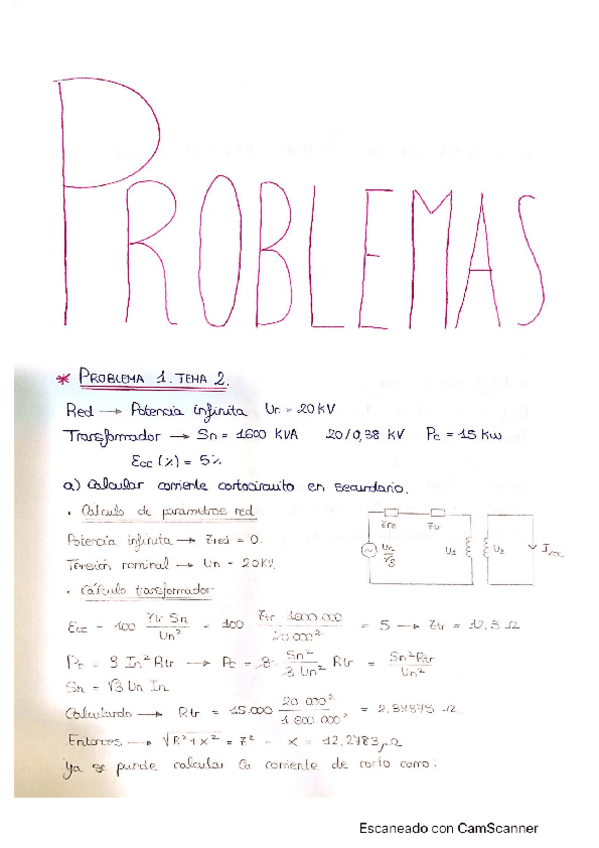 PROBLEMAS
* PROBLEMA 1. TEMA 2.
Red → Potencia infinita Un = 20 kV
Transformador → Sn = 1600 KVA 20/0,38 KV Pc = 15 Kw
Ecc (%) = 5%
a) Calcular corriente cortocircuito en secundario.
· Cálculo de parametros red
Potencia infinita → Zred = 0.
Tensión nominal → Un = 20KV.
Zre Ztr
Un/√3 U1 U2
· Cálculo transformador
Ecc = 100 Ztr Sn / Un² = 100 Ztr 1600 000 / 20 000² = 5 → Ztr = 12,5 Ω
Pc = 3 In² Rtr → Pc = 3 · Sn² / 3 Un² Rtr = Sn² Rtr / Un²
Sn = √3 Un In
Calculando → Rtr = 15.000 20 000² / 1 600 000² = 2,34375 Ω
Entonces → √R²+X² = Z² = X = 12,2783 Ω
Ya se puede calcular la corriente de corto como:
Escaneado con CamScanner